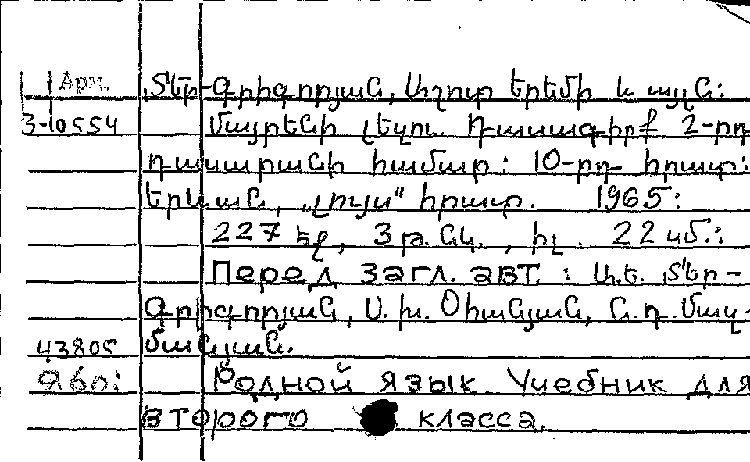 Арм. Տեր-Գրիգորյան, Աշոտ Երեմի և այլն:
3-10554 Մայրենի լեզու. Դասագիրք 2-րդ
դասարանի համար: 10-րդ հրատ:
Երևան, „Լույս" հրատ. 1965:
227 էջ, 3 թ. նկ., իլ. 22 սմ.:
Перед загл. авт: Ա.Ե. Տեր-
Գրիգորյան, Ս. Խ. Օհանյան, Ն.Դ. Մալ-
43805 մանյան.
960: Родной язык. Учебник для
второго класса.